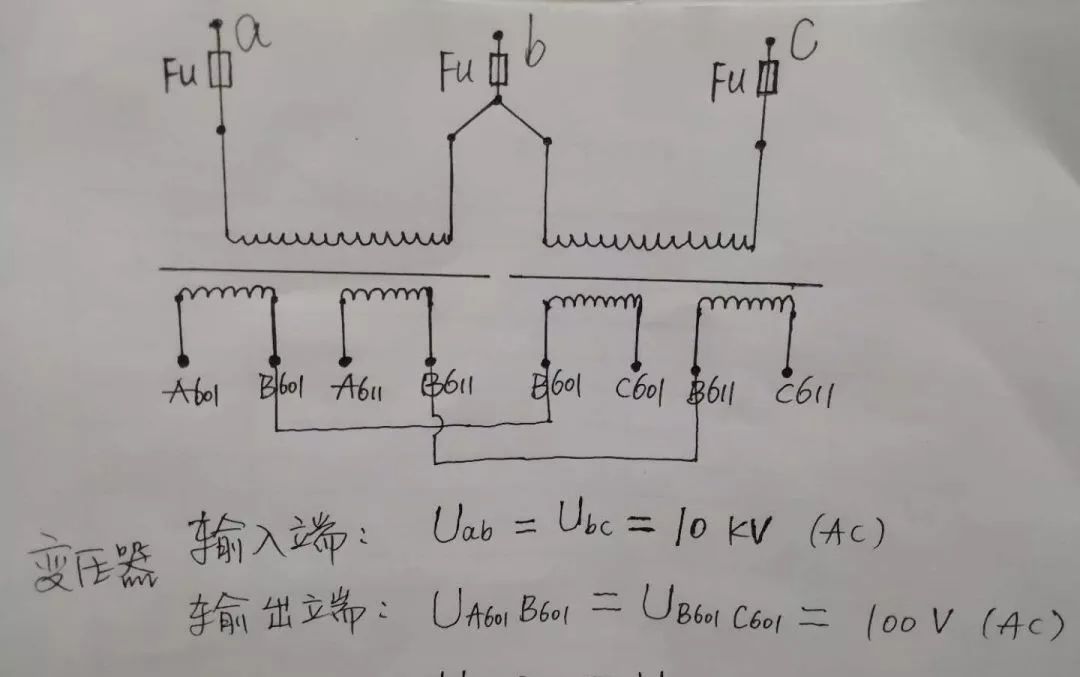 a b C
Fu Fu Fu
A601 B601 A611 B611 B601 C601 B611 C611
变压器
输入端: Uab = Ubc = 10 KV (AC)
输出端: UA601 B601 = UB601 C601 = 100 V (AC)